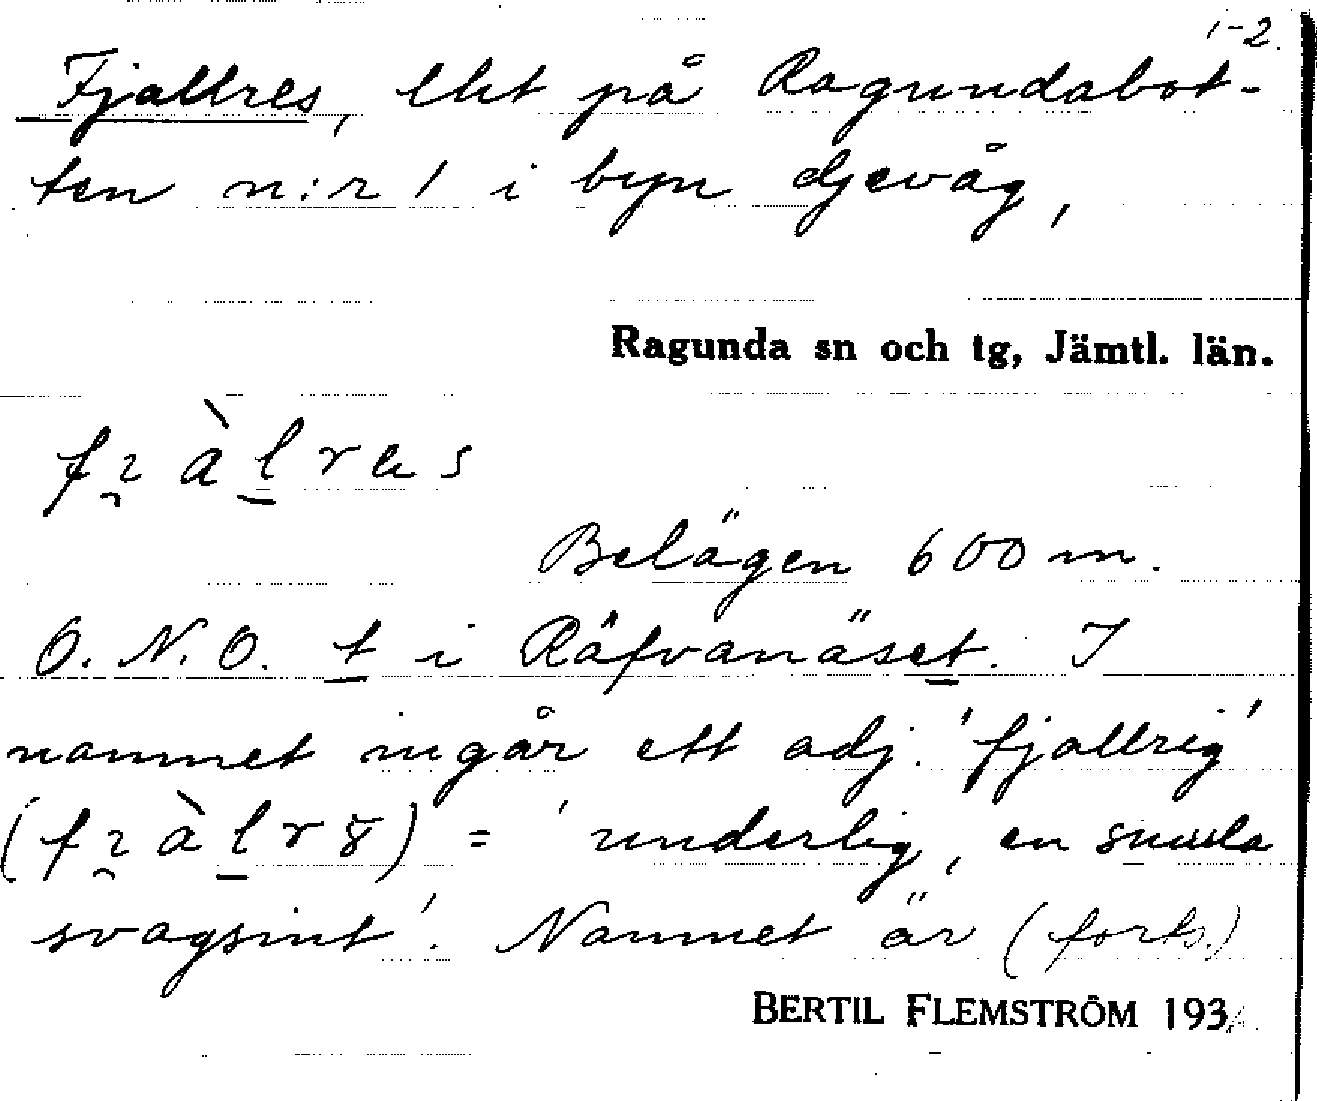 1-2.
Fjallres, lht på Ragundabot-
ten n:r 1 i byn Djevåg,
Ragunda sn och tg, Jämtl. län.
Belägen 600 m.
O.N.O. t i Räfvanäset. I
namnet ingår ett adj. 'fjallrig'
= 'underlig, en smula
svagsint'. Namnet är (forts.)
BERTIL FLEMSTRÖM 193